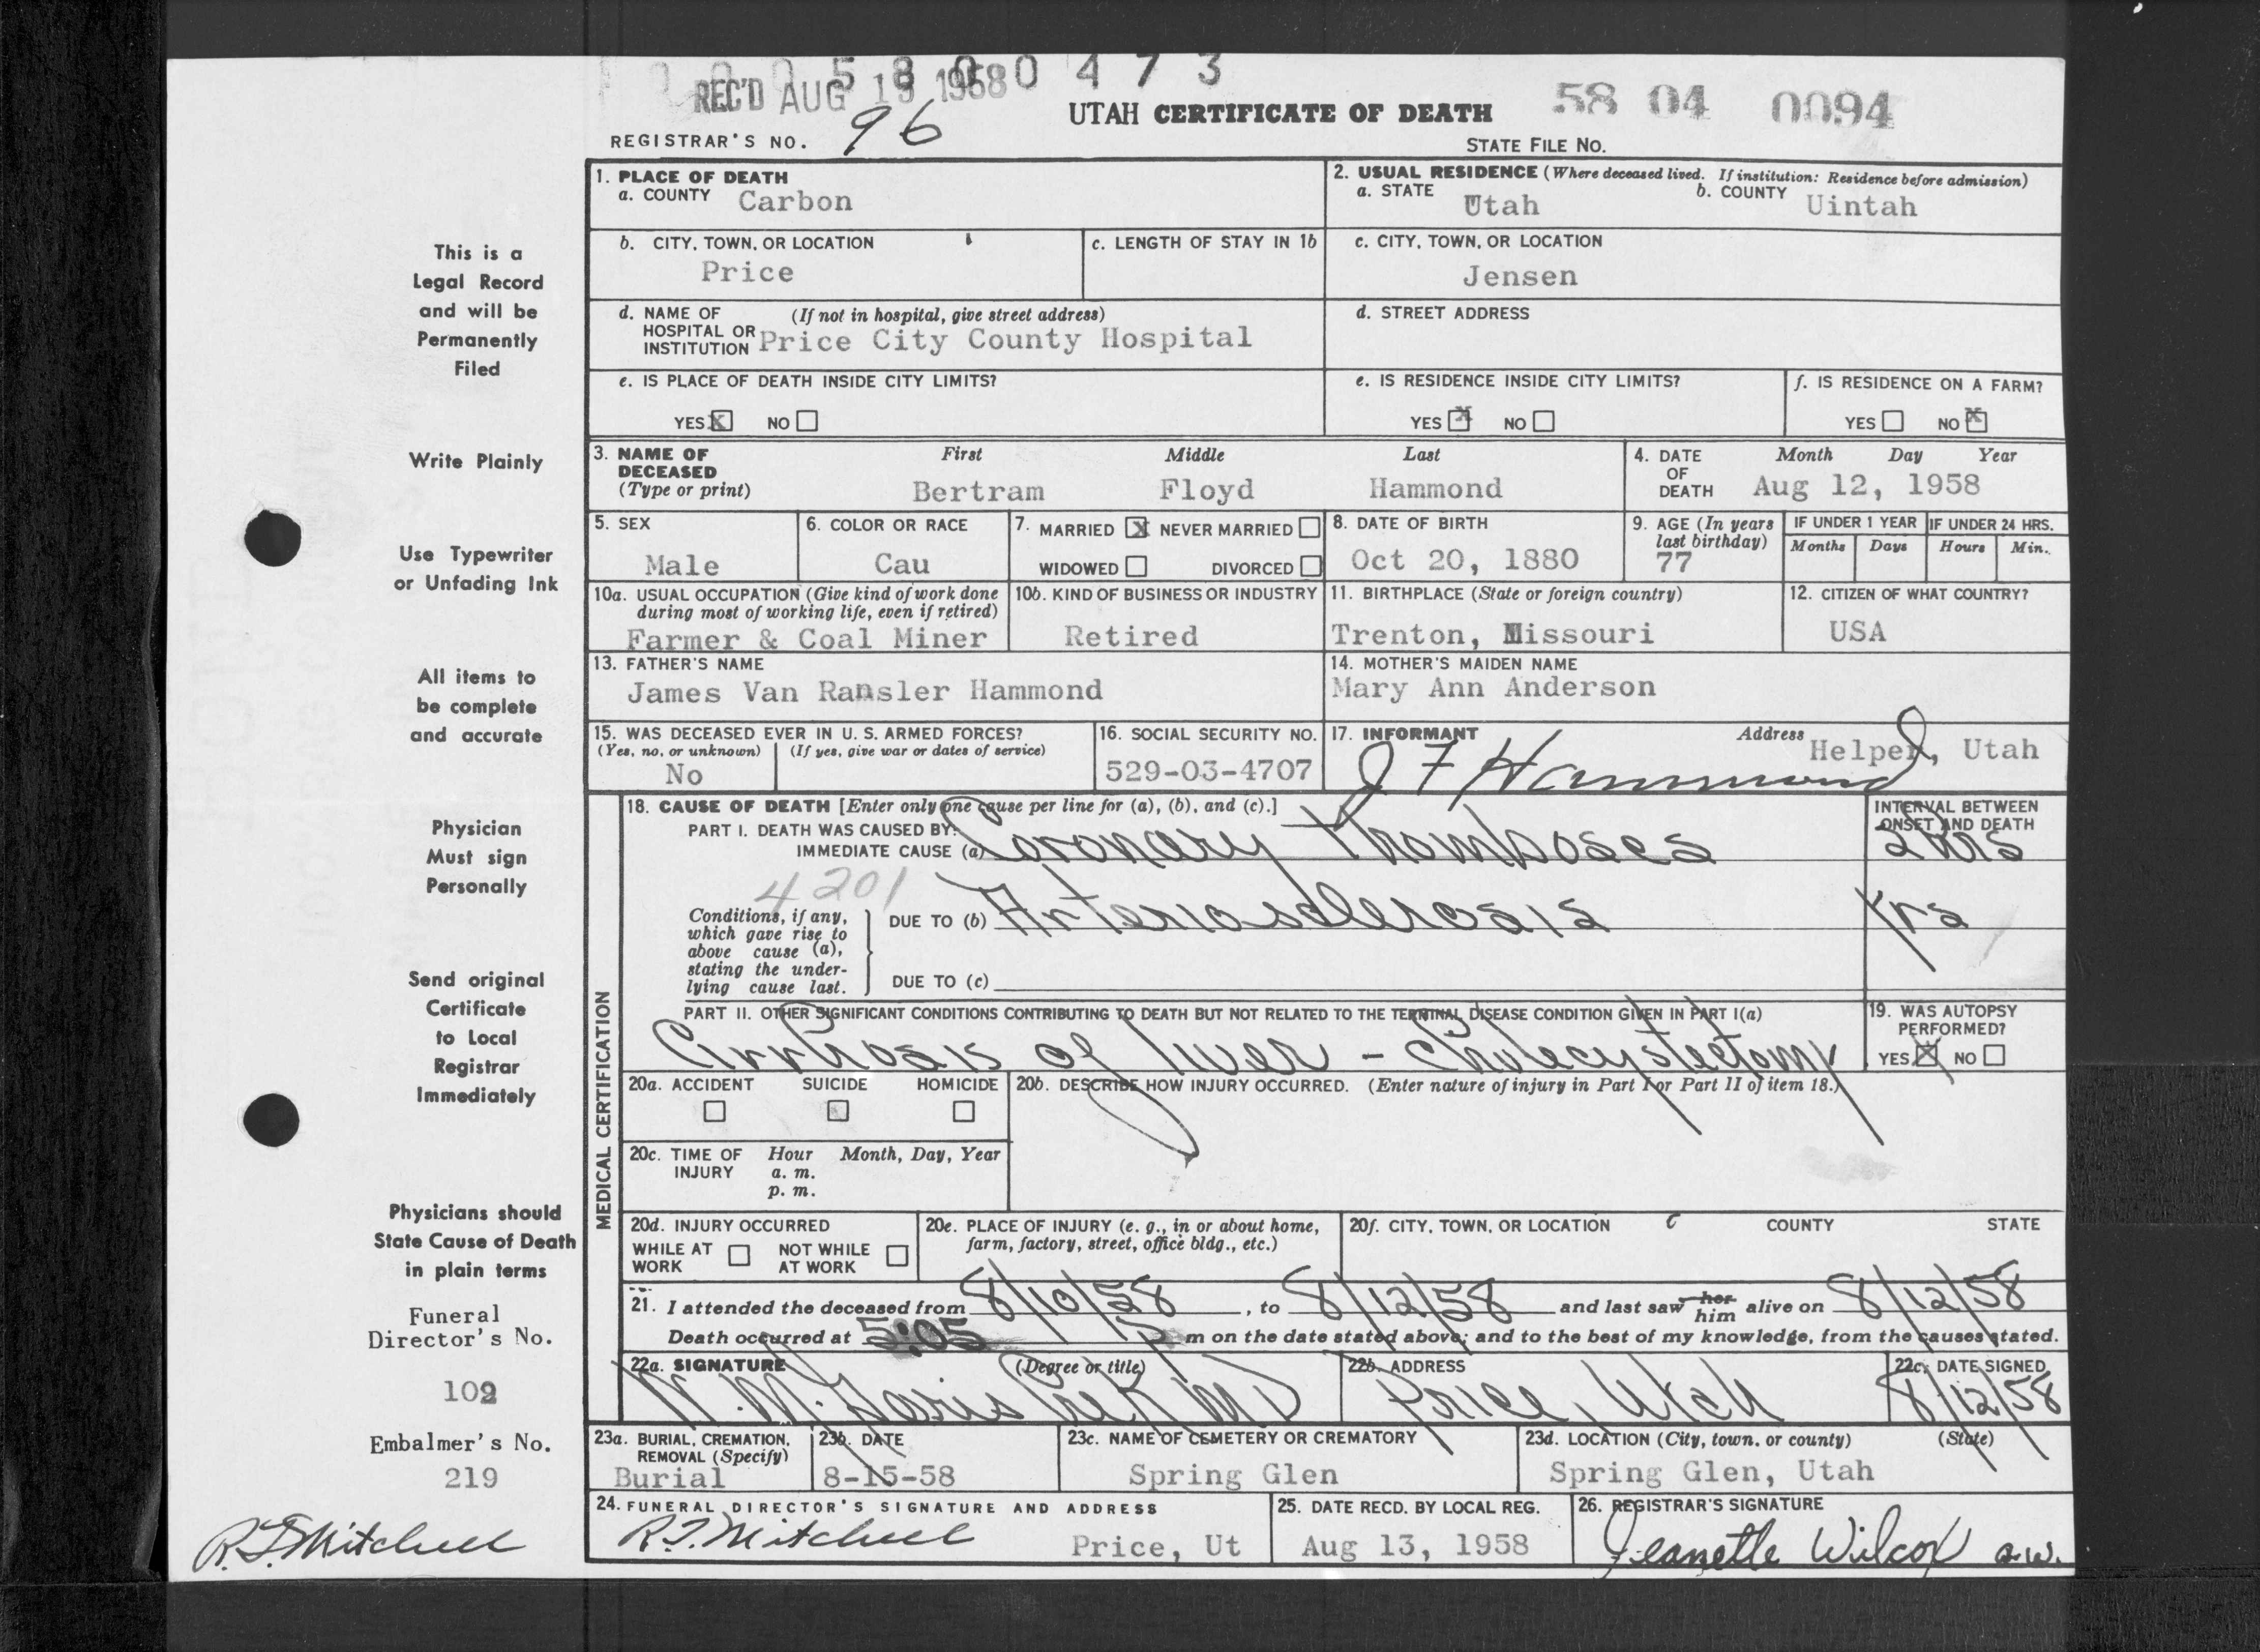 0 0 0 5 8 0 0 4 7 3
REC'D AUG 19 1958
UTAH CERTIFICATE OF DEATH
58 04 0094
REGISTRAR'S NO. 96
STATE FILE NO.
1. PLACE OF DEATH
a. COUNTY Carbon
2. USUAL RESIDENCE (Where deceased lived. If institution: Residence before admission)
a. STATE Utah b. COUNTY Uintah
b. CITY, TOWN, OR LOCATION Price
c. LENGTH OF STAY IN 1b
c. CITY, TOWN, OR LOCATION Jensen
d. NAME OF HOSPITAL OR INSTITUTION (If not in hospital, give street address) Price City County Hospital
d. STREET ADDRESS
e. IS PLACE OF DEATH INSIDE CITY LIMITS?
YES X NO
e. IS RESIDENCE INSIDE CITY LIMITS?
YES X NO
f. IS RESIDENCE ON A FARM?
YES NO X
3. NAME OF DECEASED (Type or print) First Middle Last
Bertram Floyd Hammond
4. DATE OF DEATH Month Day Year
Aug 12, 1958
5. SEX Male
6. COLOR OR RACE Cau
7. MARRIED X NEVER MARRIED
WIDOWED DIVORCED
8. DATE OF BIRTH Oct 20, 1880
9. AGE (In years last birthday) 77
IF UNDER 1 YEAR Months Days
IF UNDER 24 HRS. Hours Min.
10a. USUAL OCCUPATION (Give kind of work done during most of working life, even if retired)
Farmer & Coal Miner
10b. KIND OF BUSINESS OR INDUSTRY
Retired
11. BIRTHPLACE (State or foreign country)
Trenton, Missouri
12. CITIZEN OF WHAT COUNTRY?
USA
13. FATHER'S NAME
James Van Ransler Hammond
14. MOTHER'S MAIDEN NAME
Mary Ann Anderson
15. WAS DECEASED EVER IN U. S. ARMED FORCES?
(Yes, no, or unknown) (If yes, give war or dates of service)
No
16. SOCIAL SECURITY NO.
529-03-4707
17. INFORMANT Address
J F Hammond Helper, Utah
MEDICAL CERTIFICATION
18. CAUSE OF DEATH [Enter only one cause per line for (a), (b), and (c).]
INTERVAL BETWEEN ONSET AND DEATH
PART I. DEATH WAS CAUSED BY:
IMMEDIATE CAUSE (a) Coronary Thromboses 2 hrs
4201
Conditions, if any, which gave rise to above cause (a), stating the underlying cause last.
DUE TO (b) Arteriosclerosis yrs
DUE TO (c)
PART II. OTHER SIGNIFICANT CONDITIONS CONTRIBUTING TO DEATH BUT NOT RELATED TO THE TERMINAL DISEASE CONDITION GIVEN IN PART I(a)
Cirrhosis of liver - Cholecystectomy
19. WAS AUTOPSY PERFORMED?
YES X NO
20a. ACCIDENT SUICIDE HOMICIDE
20b. DESCRIBE HOW INJURY OCCURRED. (Enter nature of injury in Part I or Part II of item 18.)
20c. TIME OF INJURY Hour Month, Day, Year
a. m.
p. m.
20d. INJURY OCCURRED
WHILE AT WORK NOT WHILE AT WORK
20e. PLACE OF INJURY (e. g., in or about home, farm, factory, street, office bldg., etc.)
20f. CITY, TOWN, OR LOCATION COUNTY STATE
21. I attended the deceased from 8/10/58, to 8/12/58 and last saw her him alive on 8/12/58
Death occurred at 5:05 m on the date stated above; and to the best of my knowledge, from the causes stated.
22a. SIGNATURE (Degree or title)
MD
22b. ADDRESS
Price, Utah
22c. DATE SIGNED
8/12/58
23a. BURIAL, CREMATION, REMOVAL (Specify)
Burial
23b. DATE
8-15-58
23c. NAME OF CEMETERY OR CREMATORY
Spring Glen
23d. LOCATION (City, town, or county) (State)
Spring Glen, Utah
24. FUNERAL DIRECTOR'S SIGNATURE AND ADDRESS
R. T. Mitchell Price, Ut
25. DATE RECD. BY LOCAL REG.
Aug 13, 1958
26. REGISTRAR'S SIGNATURE
Jeanette Wilcox a.w.
This is a
Legal Record
and will be
Permanently
Filed
Write Plainly
Use Typewriter
or Unfading Ink
All items to
be complete
and accurate
Physician
Must sign
Personally
Send original
Certificate
to Local
Registrar
Immediately
Physicians should
State Cause of Death
in plain terms
Funeral
Director's No.
102
Embalmer's No.
219
R. T. Mitchell